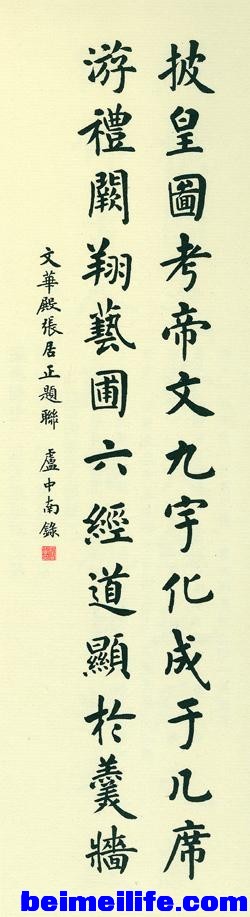 披皇圖考帝文九宇化成于几席
游禮闕翔藝圃六經道顯於羹牆
文華殿張居正題聯 盧中南錄
beimeilife.com